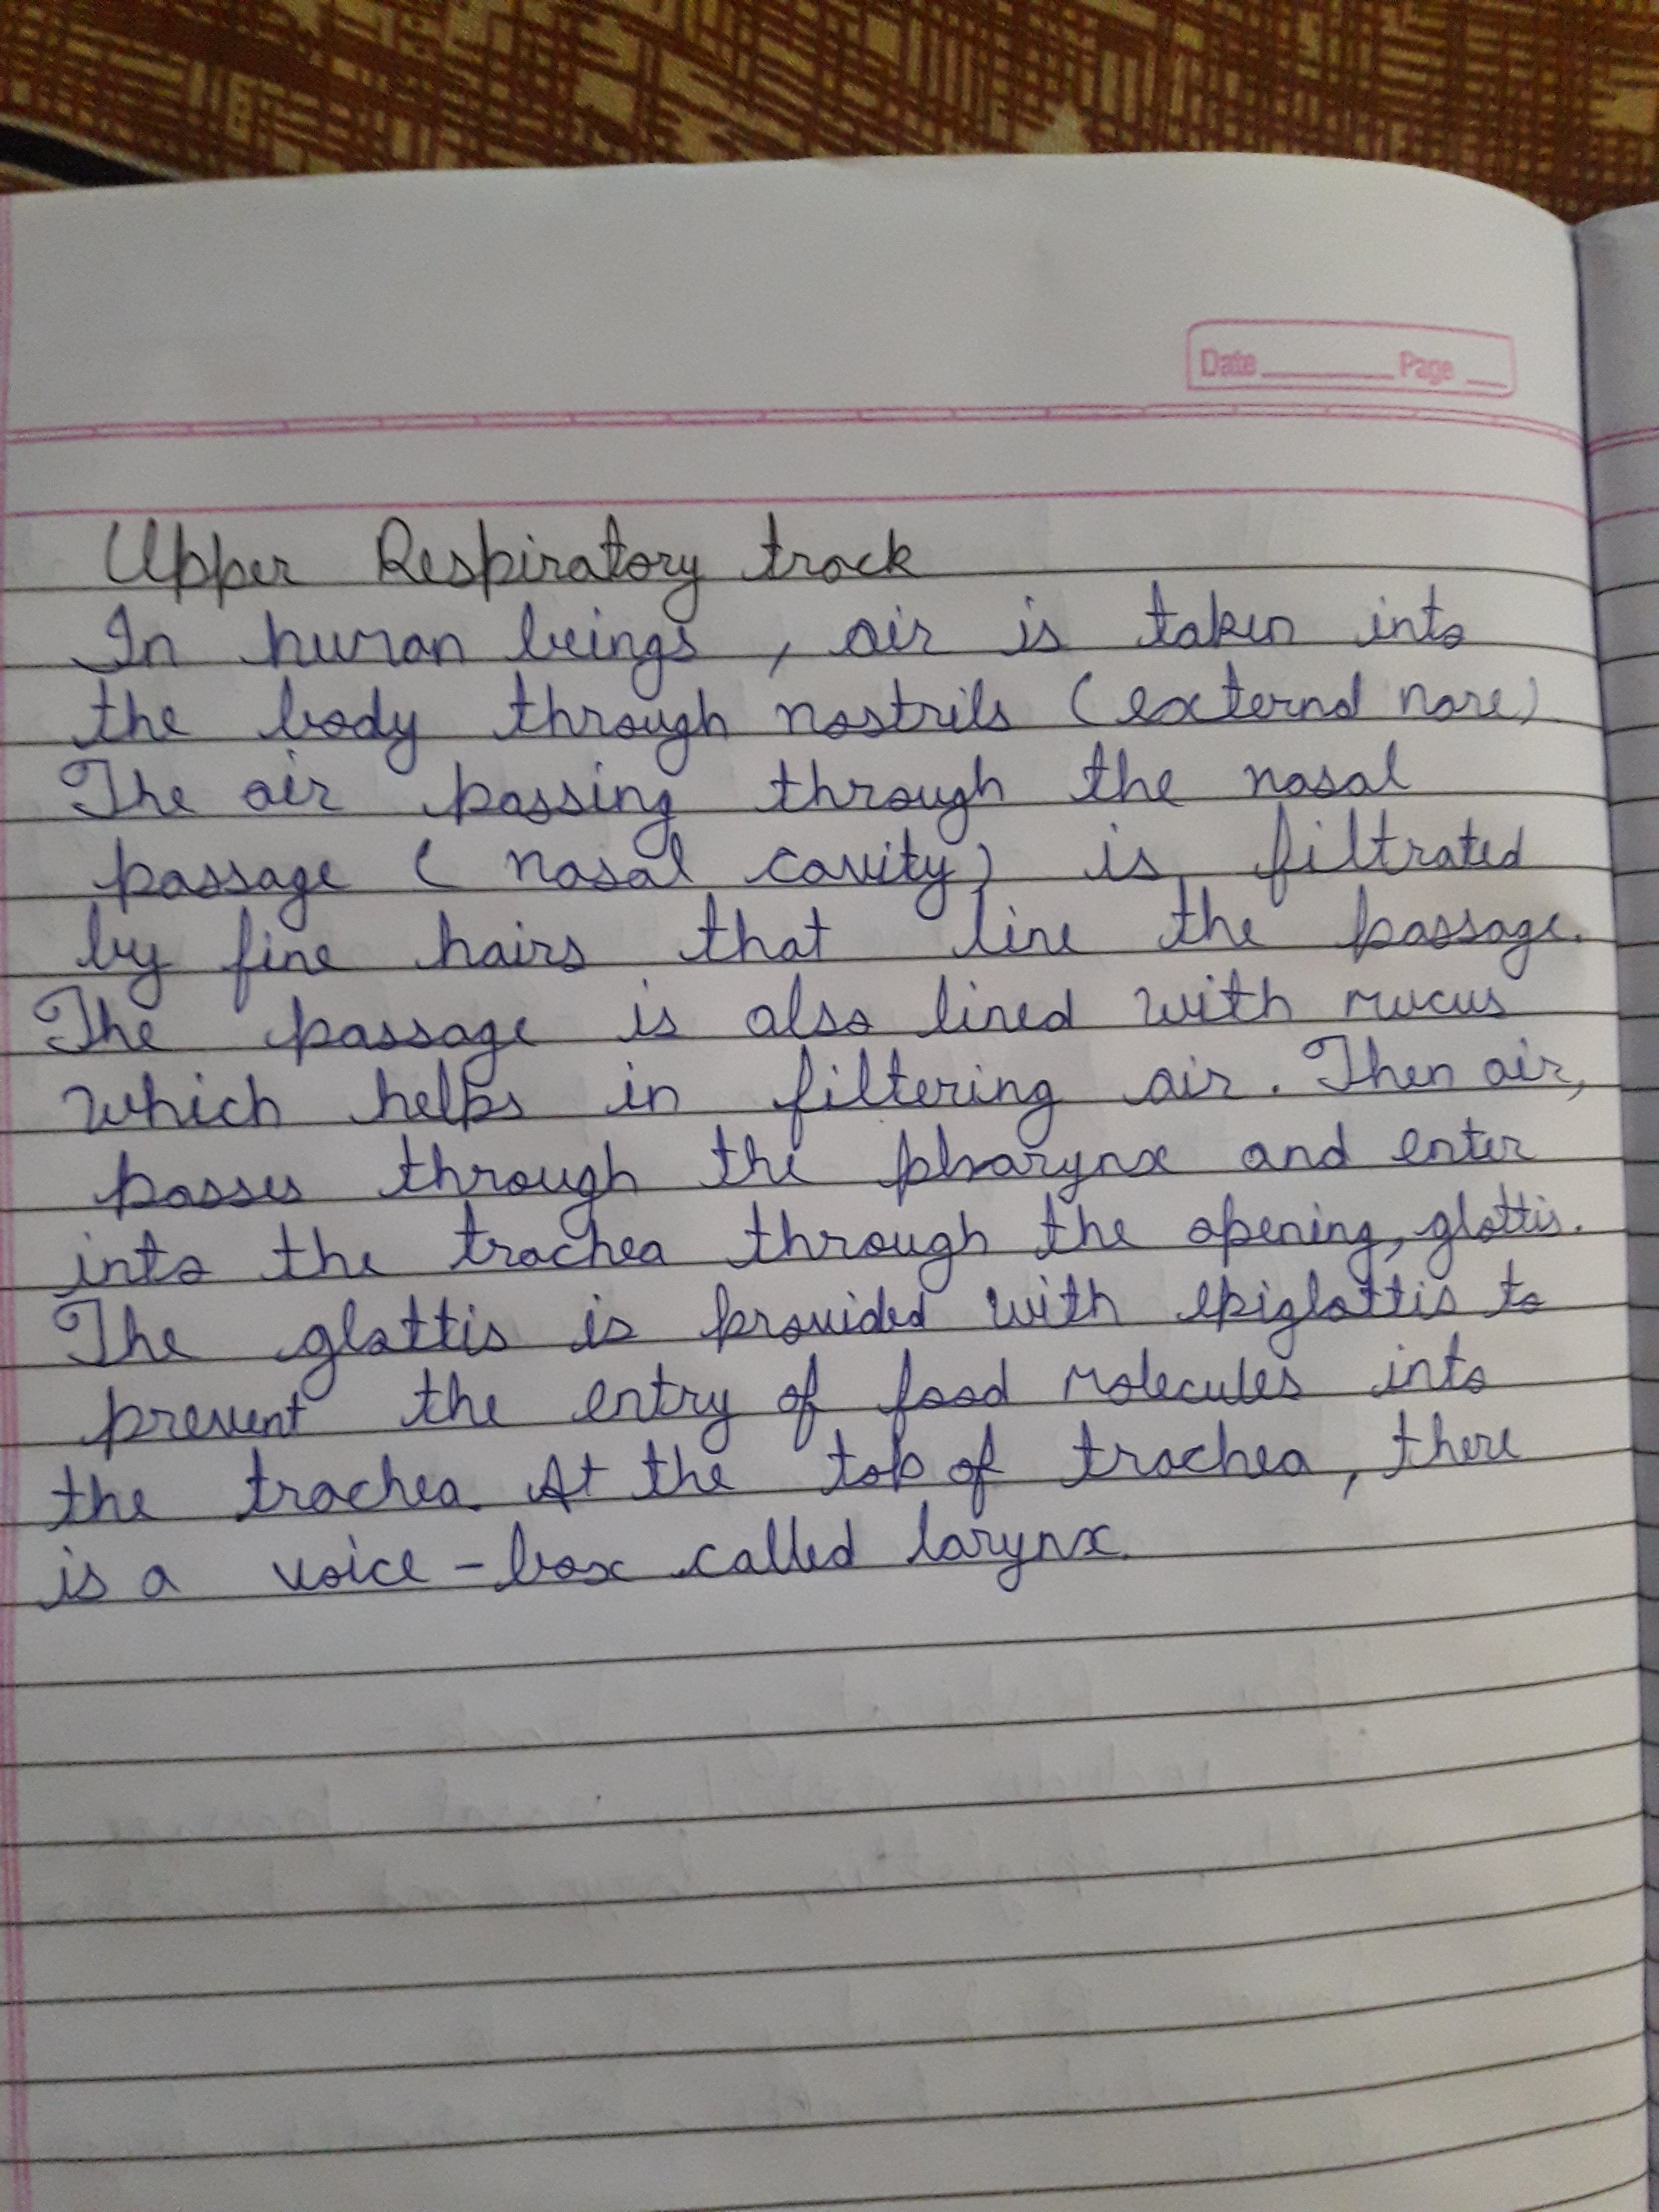 Date Page
Upper Respiratory track
In human beings, air is taken into
the body through nostrils (external nare)
The air passing through the nasal
passage (nasal cavity) is filtrated
by fine hairs that line the passage.
The passage is also lined with mucus
which helps in filtering air. Then air,
passes through the pharynx and enter
into the trachea through the opening, glottis.
The glottis is provided with epiglottis to
prevent the entry of food molecules into
the trachea. At the top of trachea, there
is a voice-box called larynx.